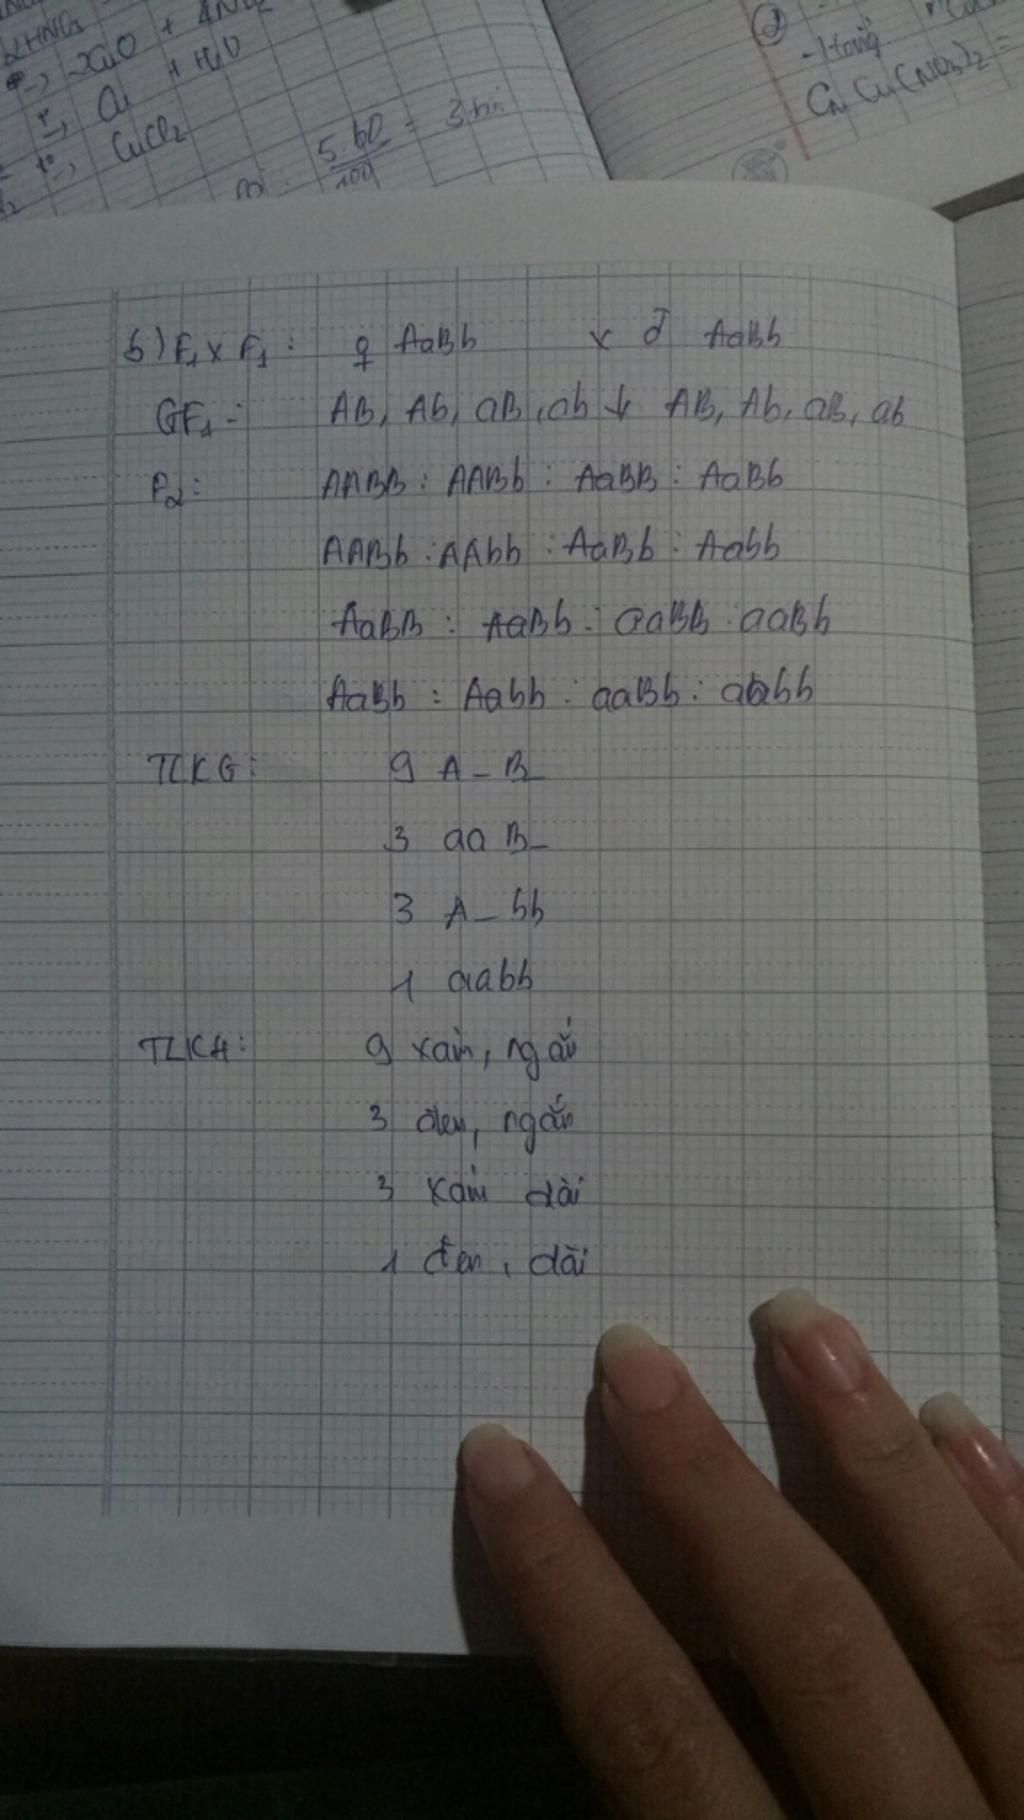 2HNO3
2CuO +
Cu + H2O
to, CuCl2
5.60 / 100 = 3
2
Cu(NO3)2 =
b) F1 x F1 : ♀ AaBb x ♂ AaBb
GF1 : AB, Ab, aB, ab ↓ AB, Ab, aB, ab
F2 : AABB : AABb : AaBB : AaBb
AABb : AAbb : AaBb : Aabb
AaBB : AaBb : aaBB : aaBb
AaBb : Aabb : aaBb : aabb
TLKG : 9 A - B_
3 aa B_
3 A_ bb
1 aabb
TLKH : 9 xám, ngắn
3 đen, ngắn
3 xám dài
1 đen, dài